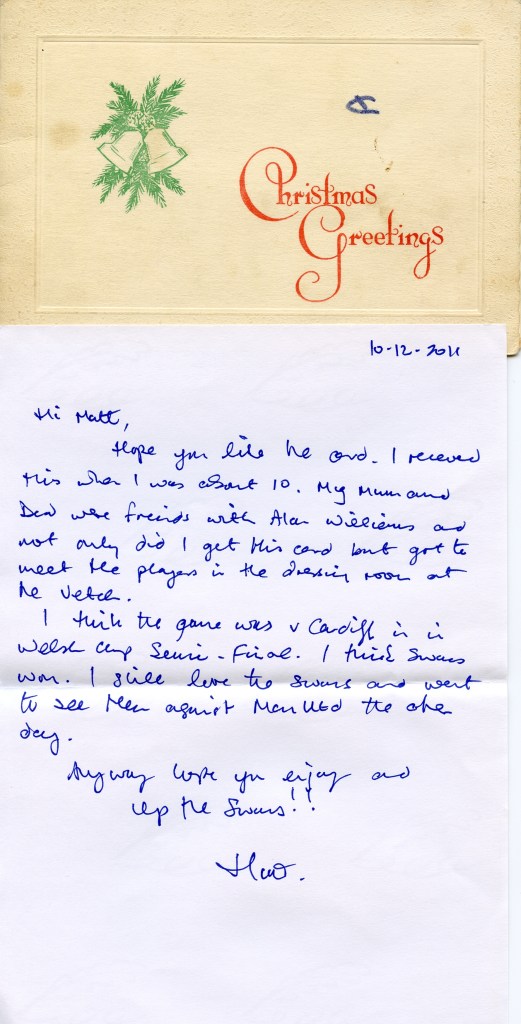 Christmas
Greetings
10-12-2011
Hi Matt,
Hope you like the card. I received
this when I was about 10. My Mum and
Dad were freinds with Alan Williams and
not only did I get this card but got to
meet the players in the dressing room at
the Vetch.
I think the game was v Cardiff in
Welsh Cup Semi-Final. I think Swans
won. I still love the Swans and went
to see them against Man Utd the other
day.
Anyway hope you enjoy and
Up the Swans!!